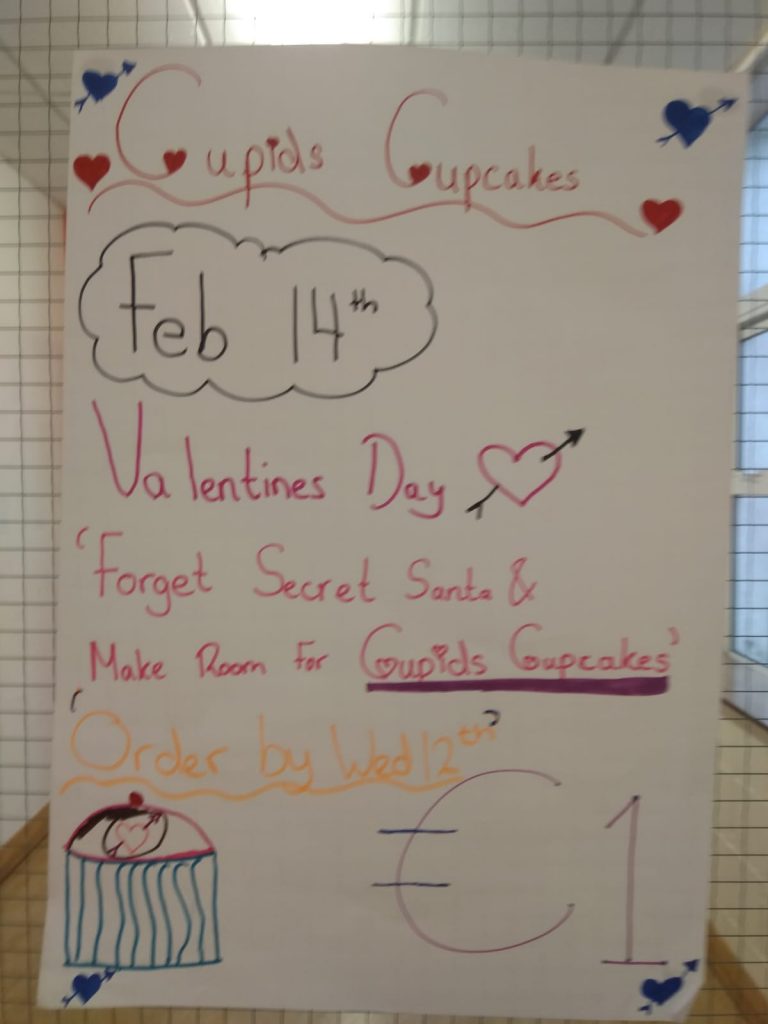 Cupids Cupcakes
Feb 14th
Valentines Day
'Forget Secret Santa &
Make Room For Cupids Cupcakes'
'Order by Wed 12th'
€1